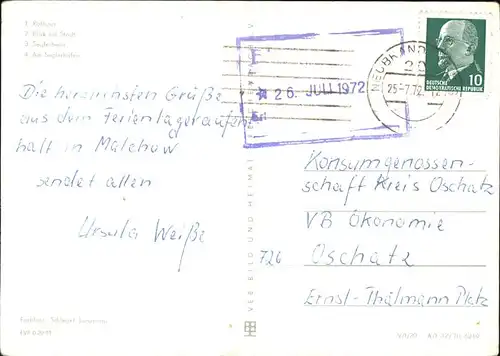 1 Rathaus
2 Blick zur Stadt
3 Seglerheim
4 Am Seglerhafen
Die herzlichsten Grüße
aus dem Ferienlageraufent-
halt in Malchow
sendet allen
Ursula Weiße
VEB BILD UND HEIMAT
26. JULI 1972
NEUBRAND
20
25-7.72
DEUTSCHE
DEMOKRATISCHE REPUBLIK
10
Konsumgenossen-
schaft Kreis Oschatz
VB Ökonomie
726 Oschatz
Ernst-Thälmann Platz